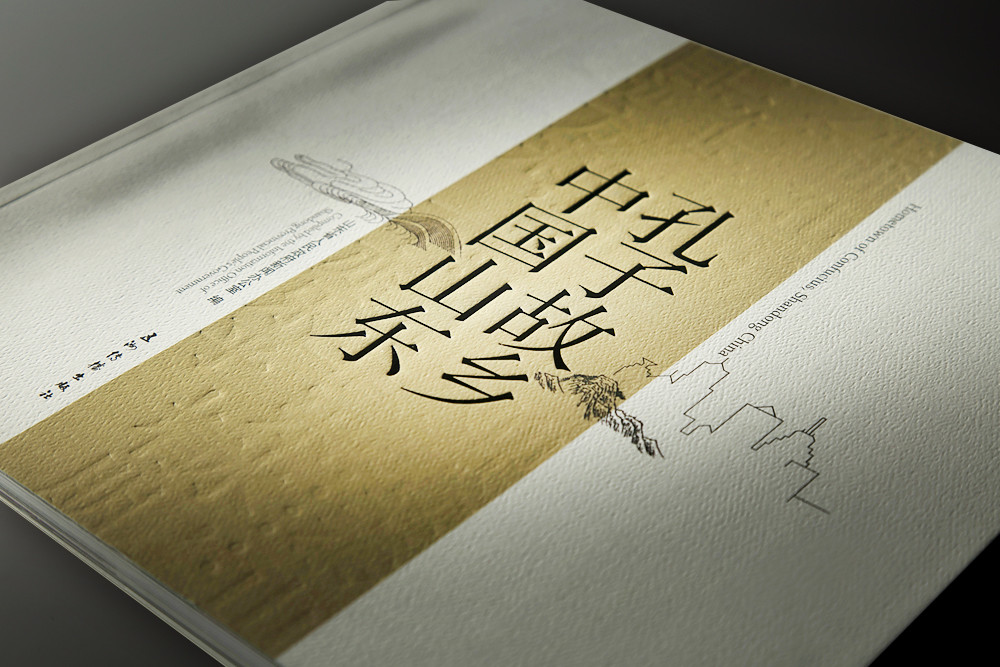 孔子故乡
中国山东
Hometown of Confucius, Shandong China
山东省人民政府新闻办公室 编
Compiled by the Information Office of
Shandong Provincial People's Government
五洲传播出版社